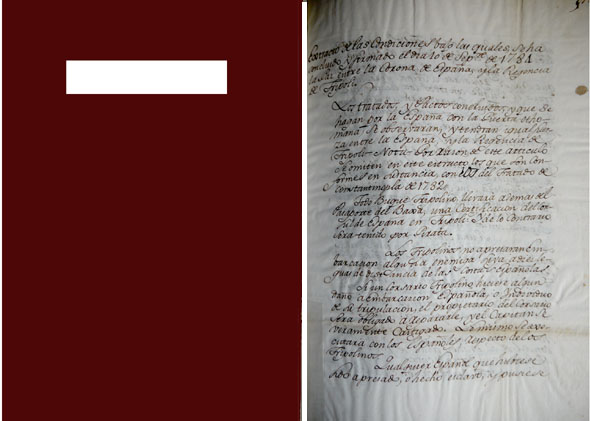 Extracto de las Condiciones bajo las quales, se ha
concluido y firmado el dia 10 de Septre. de 1784
la Paz entre la Corona de España, y la Regencia
de Tripoli.
Los tratados, y Pactos concluidos, y que se
hagan por la España con la Puerta otho-
mana se observaran, y tendran igual fuer-
za entre la España, y la Regencia de
Tripoli. Nota. Por razon de este articulo
se omiten en este extracto los que son Con-
formes en sustancia, con los del Tratado de
Constantinopla de 1782.
Todo Buque Tripolino llevará ademas del
Pasaporte del Baxá, una Certificacion del Con-
sul de España en Tripoli, y de lo Contrario
sera tenido por Pirata.
Los Tripolinos no apresaran Em-
barcacion alguna enemiga suya a diez le-
guas de distancia de las Costas españolas.
Si un Corsario Tripolino hiciere algun
daño a embarcacion Española, o Individuo
de su tripulacion, el propietario del Corsario
sera obligado a repararle, y el Capitan se-
veramente Castigado. Lo mismo se exe-
cutará con los Españoles respecto de los
Tripolinos.
Qualquier Español que hubiese
sido apresado, o hecho esclavo, y pusiese